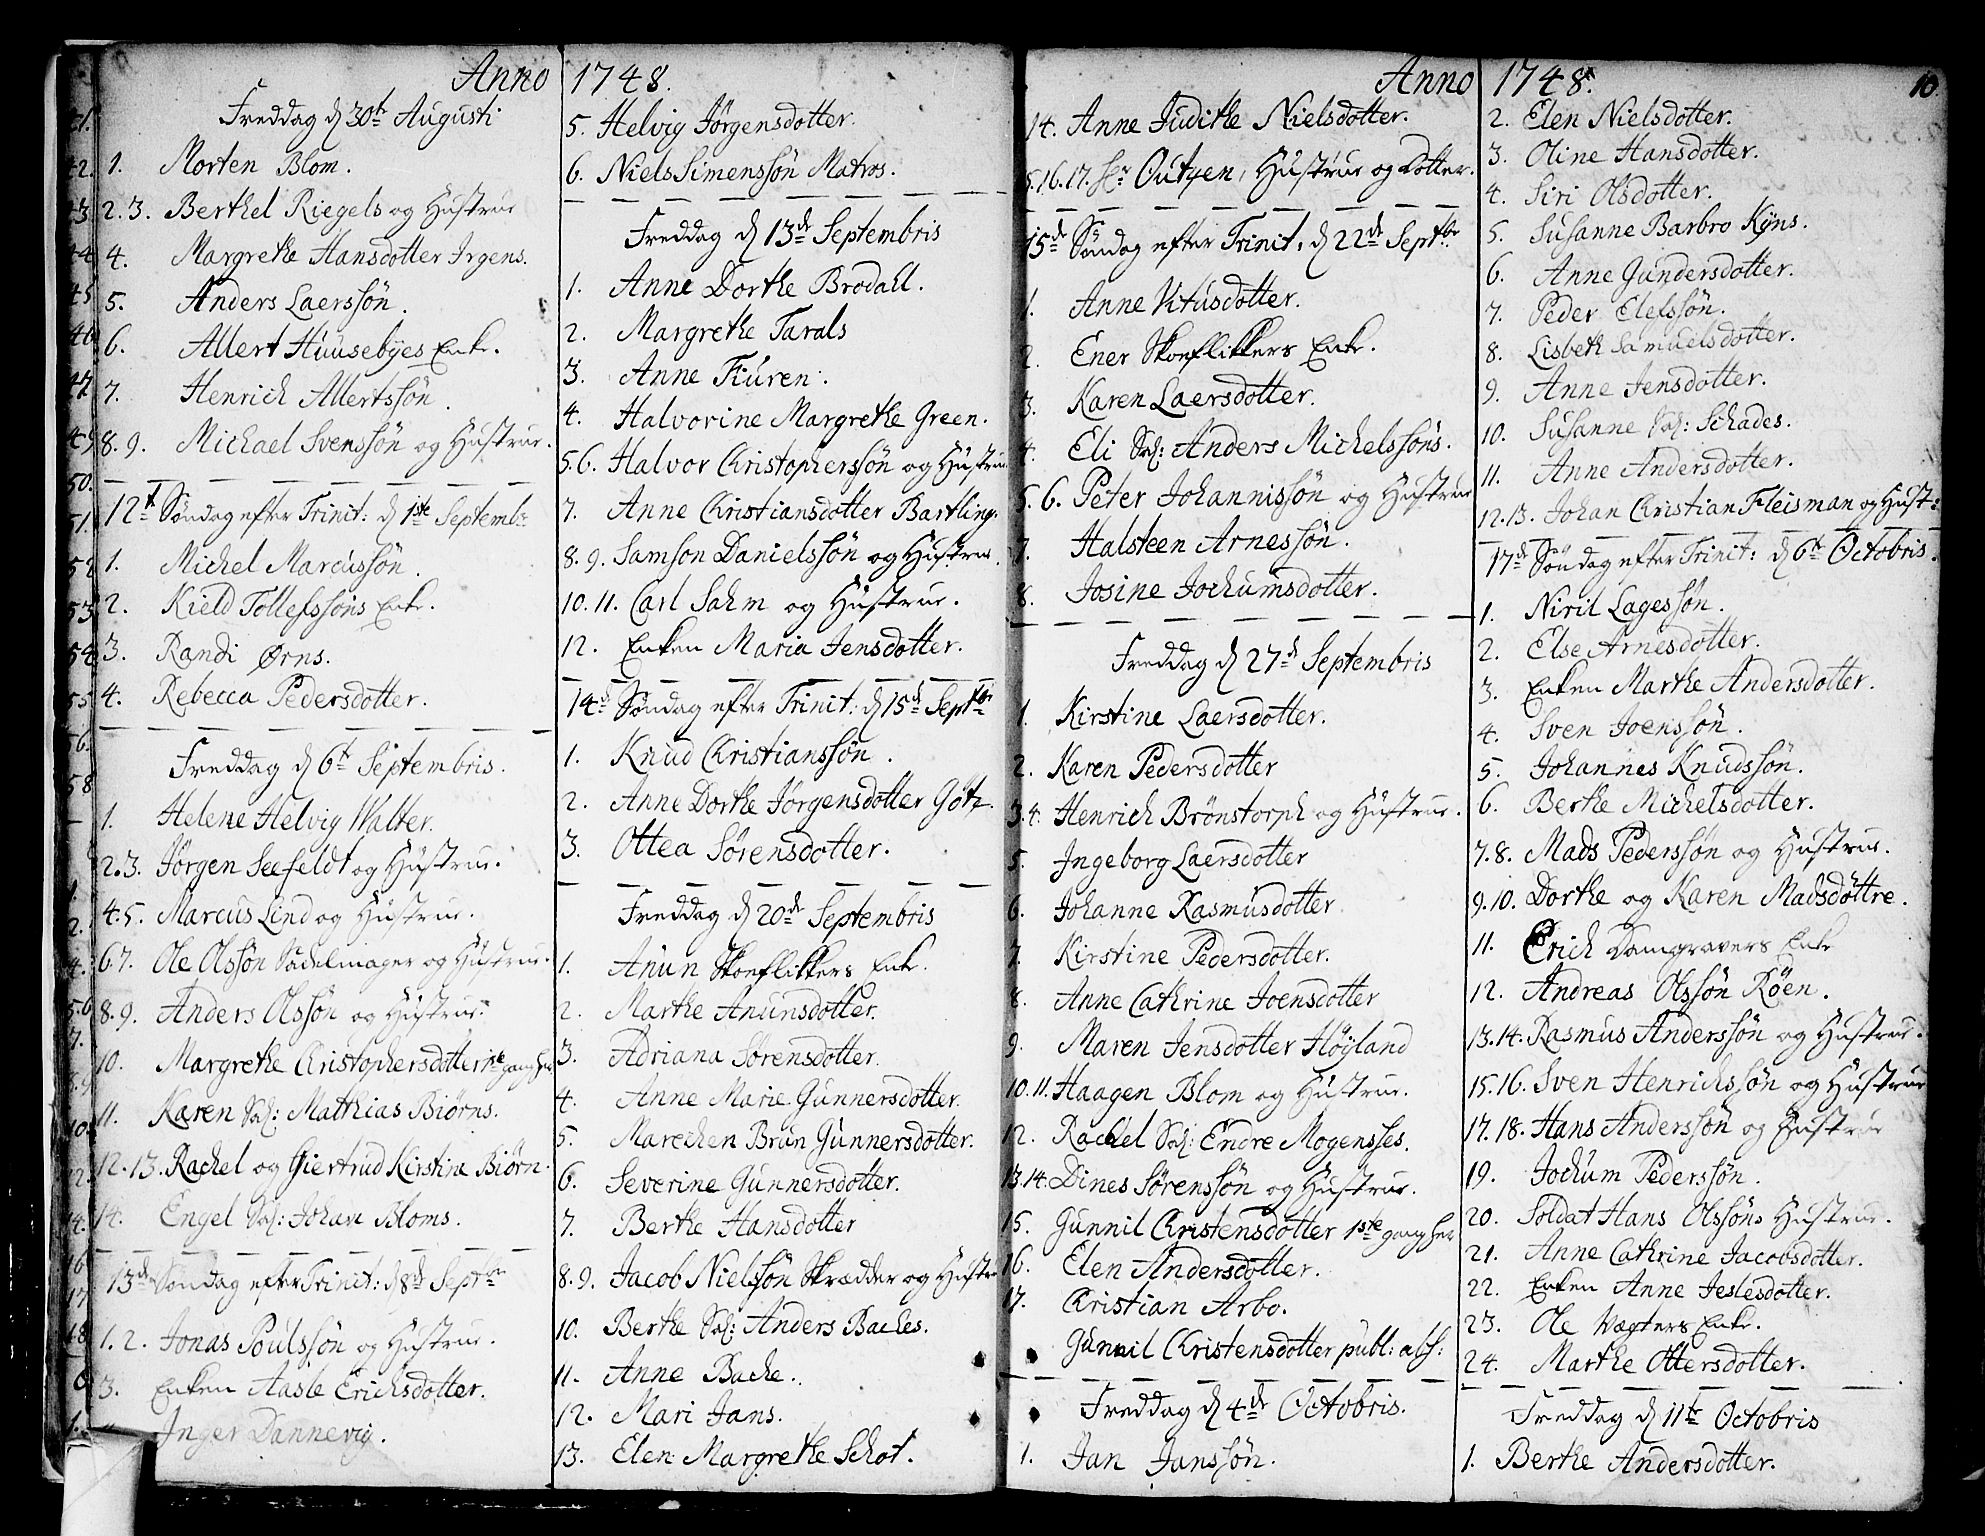 Anno 1748.
Freddag d 30t Augusti
1. Morten Blom.
2. 3. Berthel Riegels og Hustrue
4. Margrethe Hansdotter Irgens.
5. Anders Laerssøn.
6. Allert Huusebÿes Enke.
7. Henrich Allertssøn.
8. 9. Michael Svenssøn og Hustrue.
12t Søndag efter Trinit: d 1ste Septembr
1. Michel Marcussøn.
2. Kield Tollefssøns Enke.
3. Randi Ørns.
4. Rebecca Pedersdotter.
Freddag d 6t Septembris.
1. Helene Helvig Walter.
2. 3. Jørgen Seefeldt og Hustrue.
4. 5. Marcus Lind og Hustrue.
6. 7. Ole Olssøn Sadelmager og Hustrue.
8. 9. Anders Olssøn og Hustrue.
10. Margrethe Christophersdotter 1ste gang her
11. Karen Sal: Mathias Biørns.
12. 13. Rachel og Giertrud Kirstine Biørn.
14. Engel Sal: Johan Bloms.
13de Søndag efter Trinit: d 8de Septbr
1. 2. Jonas Poulssøn og Hustrue.
3. Enken Aasle Erichsdotter.
Inger Dannevig.
5. Helvig Jørgensdotter.
6. Niels Simenssøn Matros.
Freddag d 13de Septembris
1. Anne Dorthe Brodahl.
2. Margrethe Tarals
3. Anne Fiuren.
4. Halvorine Margrethe Green.
5. 6. Halvor Christopherssøn og Hustrue
7. Anne Christiansdotter Bartling.
8. 9. Samson Danielssøn og Hustrue.
10. 11. Carl Sahm og Hustrue.
12. Enken Maria Jensdotter.
14d Søndag efter Trinit: d 15d Septbr
1. Knud Christianssøn.
2. Anne Dorthe Jørgensdotter Götz.
3. Ottea Sørensdotter.
Freddag d 20de Septembris
1. Anun Skoeflikkers Enke.
2. Marthe Anunsdotter.
3. Adriana Sørensdotter.
4. Anne Marie Gunnersdotter.
5. Marechen Brun Gunnersdotter.
6. Severine Gunnersdotter.
7. Berthe Hansdotter
8. 9. Jacob Nielssøn Skrædder og Hustrue
10. Berthe Sal: Anders Baches.
11. Anne Bache.
12. Mari Jans.
13. Elen Margrethe Schot.
Anno 1748. 10.
14. Anne Judithe Nielsdotter.
5. 16. 17. Sr Outzen, Hustrue og Dotter.
15de Søndag efter Trinit: d 22de Septbr.
1. Anne Vitusdotter.
2. Ener Skoeflikkers Enke.
3. Karen Laersdotter.
4. Eli Sal: Anders Michelssøns.
5. 6. Peter Johannissøn og Hustrue
7. Halsteen Arnessøn.
8. Josine Jochumsdotter.
Freddag d 27d Septembris
1. Kirstine Laersdotter.
2. Karen Pedersdotter
3. 4. Henrich Brönstorph og Hustrue.
5. Ingeborg Laersdotter
6. Johanne Rasmusdotter
7. Kirstine Pedersdotter.
8. Anne Cathrine Joensdotter
9. Maren Jensdotter Höÿland
10. 11. Haagen Blom og Hustrue.
12. Rachel Sal: Endre Mogensses.
13. 14. Dines Sørenssøn og Hustrue.
15. Gunnil Christensdotter 1ste gang her
16. Elen Andersdotter.
17. Christian Arbo.
Gunnil Christensdotter publ: abs:
Freddag d 4de Octobris.
1. Jan Janssøn.
2. Elen Nielsdotter.
3. Oline Hansdotter.
4. Siri Olsdotter.
5. Susanne Barbro Kÿns.
6. Anne Gundersdotter.
7. Peder Elefssøn.
8. Lisbeth Samuelsdotter.
9. Anne Jensdotter.
10. Susanne Sal: Schades.
11. Anne Andersdotter.
12. 13. Johan Christian Fleisman og Hust:
17de Søndag efter Trinit: d 6t Octobris.
1. Niril Lagessøn.
2. Else Arnesdotter.
3. Enken Marthe Andersdotter.
4. Sven Joenssøn.
5. Johannes Knudssøn.
6. Berthe Michelsdotter.
7. 8. Mads Pederssøn og Hustrue.
9. 10. Dorthe og Karen Madsdøttre.
11. Erich Damgravers Enke
12. Andreas Olssøn Röen.
13. 14. Rasmus Anderssøn og Hustrue.
15. 16. Sven Henrichssøn og Hustrue
17. 18. Hans Anderssøn og Hustrue
19. Jochum Pederssøn.
20. Soldat Hans Olssøns Hustrue.
21. Anne Cathrine Jacobsdotter.
22. Enken Anne Jeslesdotter.
23. Ole Vægters Enke.
24. Marthe Ottersdotter.
Freddag d 11te Octobris
1. Berthe Andersdotter.